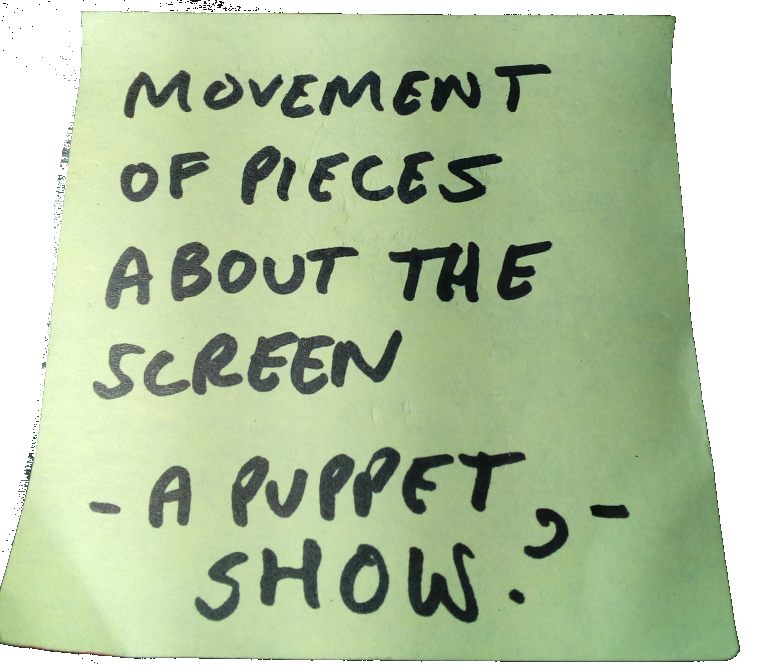 MOVEMENT
OF PIECES
ABOUT THE
SCREEN
- A PUPPET -
SHOW?